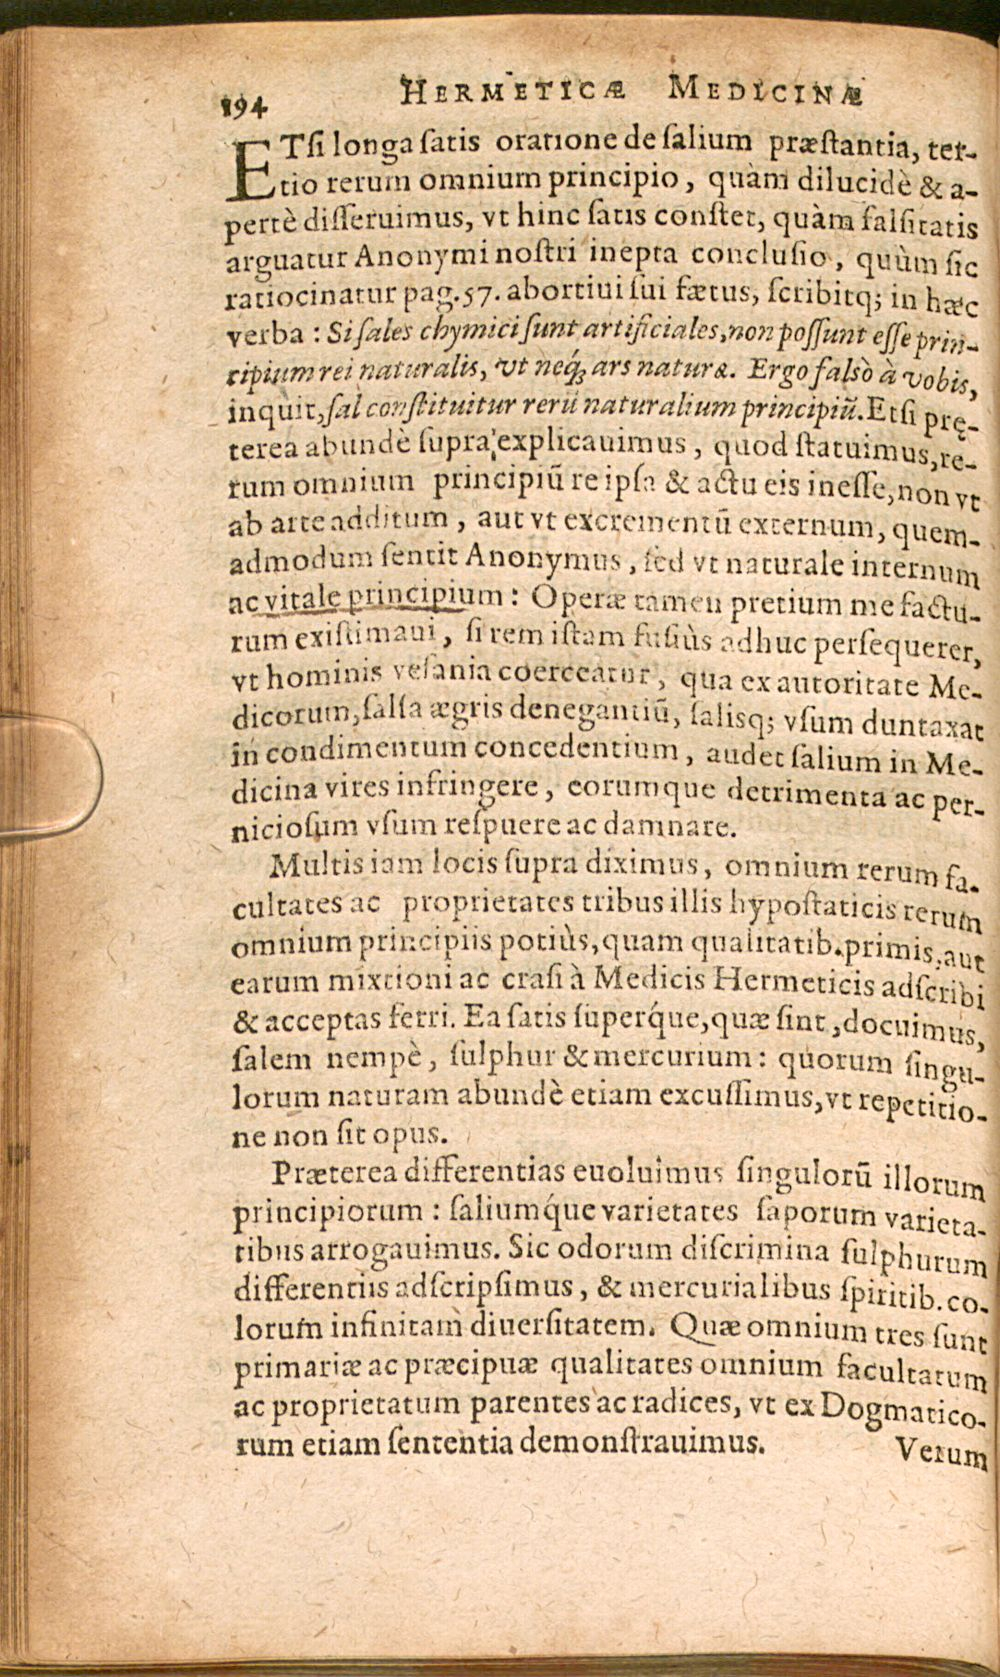 194 HERMETICÆ MEDICINÆ
ETſi longa ſatis oratione de ſalium præſtantia, ter-
tio rerum omnium principio, quàm dilucidè & a-
pertè diſſeruimus, vt hinc ſatis conſtet, quàm falſitatis
arguatur Anonymi noſtri inepta concluſio, quùm ſic
ratiocinatur pag.57. abortiui ſui fætus, ſcribitq; in hæc
verba : Si ſales chymici ſunt artificiales, non poſſunt eſſe prin-
cipium rei naturalis, vt neq́; ars naturæ. Ergo falsò à vobis,
inquit, ſal conſtituitur rerū naturalium principiū. Etſi prę-
terea abundè ſupra explicauimus, quod ſtatuimus, re-
rum omnium principiū re ipſa & actu eis ineſſe, non vt
ab arte additum, aut vt excrementū externum, quem-
admodum ſentit Anonymus, ſed vt naturale internum
ac vitale principium: Operæ tamen pretium me factu-
rum exiſtimaui, ſi rem iſtam fuſiùs adhuc perſequerer,
vt hominis veſania coerceatur, qua ex autoritate Me-
dicorum, ſalſa ægris denegantiū, ſalisq; vſum duntaxat
in condimentum concedentium, audet ſalium in Me-
dicina vires infringere, eorumque detrimenta ac per-
nicioſum vſum reſpuere ac damnare.
Multis iam locis ſupra diximus, omnium rerum fa-
cultates ac proprietates tribus illis hypoſtaticis rerum
omnium principiis potiùs, quam qualitatib. primis, aut
earum mixtioni ac craſi à Medicis Hermeticis adſcribi
& acceptas ferri. Ea ſatis ſuperq́ue, quæ ſint, docuimus,
ſalem nempè, ſulphur & mercurium: quorum ſingu-
lorum naturam abundè etiam excuſſimus, vt repetitio-
ne non ſit opus.
Præterea differentias euoluimus ſingulorū illorum
principiorum: ſaliumq́ue varietates ſaporum varieta-
tibus arrogauimus. Sic odorum diſcrimina ſulphurum
differentiis adſcripſimus, & mercurialibus ſpiritib. co-
lorum infinitam diuerſitatem. Quæ omnium tres ſunt
primariæ ac præcipuæ qualitates omnium facultatum
ac proprietatum parentes ac radices, vt ex Dogmatico-
rum etiam ſententia demonſtrauimus.
Verum